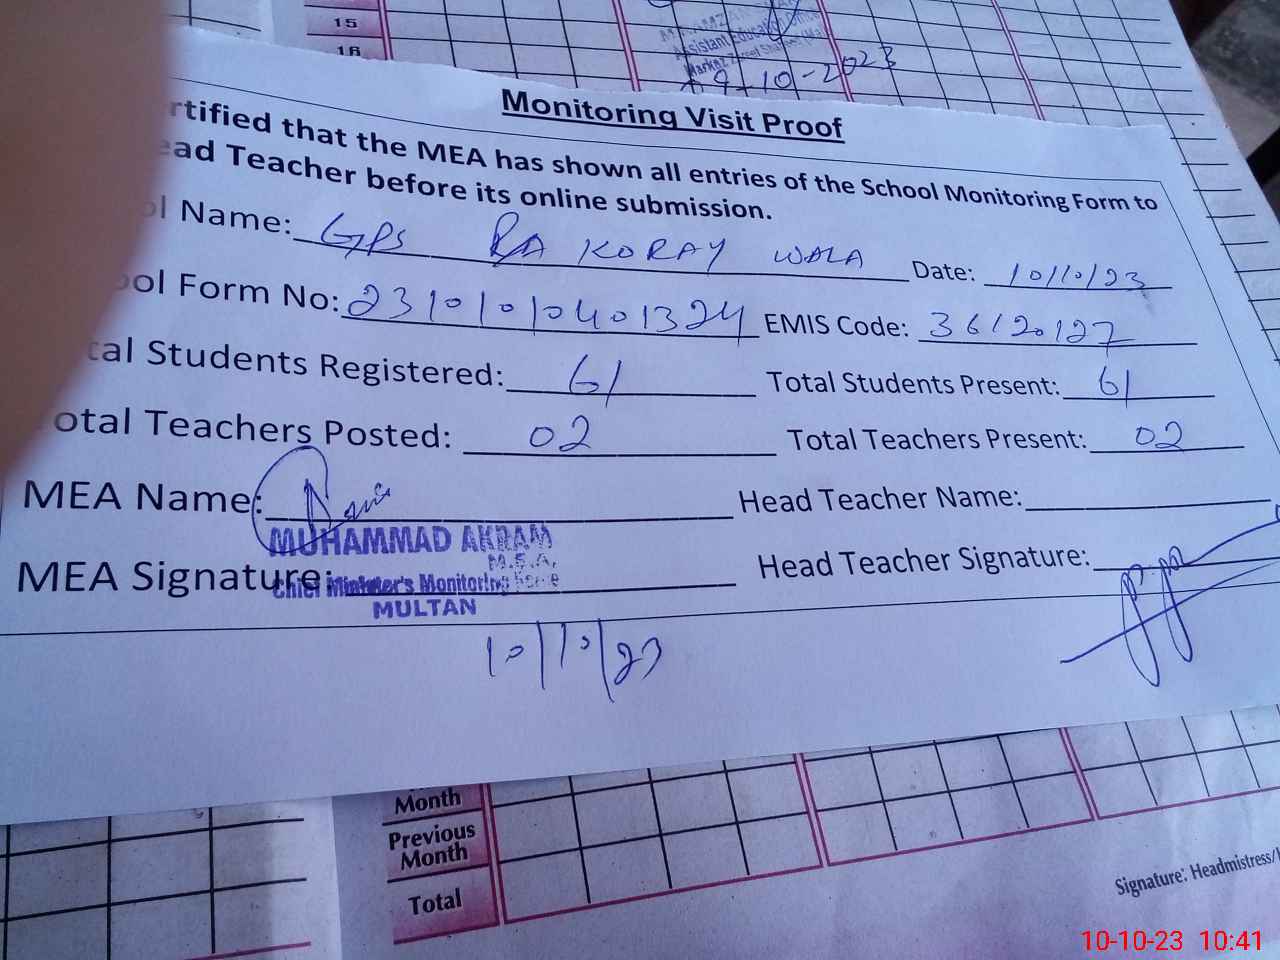 15
16
Assistant Education Officer
19-10-2023
Monitoring Visit Proof
rtified that the MEA has shown all entries of the School Monitoring Form to
ead Teacher before its online submission.
ol Name: GPS RA KORAY WALA Date: 10/10/23
ool Form No: 23101010401324 EMIS Code: 36120127
tal Students Registered: 61 Total Students Present: 61
otal Teachers Posted: 02 Total Teachers Present: 02
MEA Name: Head Teacher Name:
MUHAMMAD AKRAM
M.E.A,
MEA Signature: Head Teacher Signature:
Chief Minister's Monitoring Force
MULTAN
10/10/23
Month
Previous Month
Total
Signature: Headmistress/
10-10-23 10:41